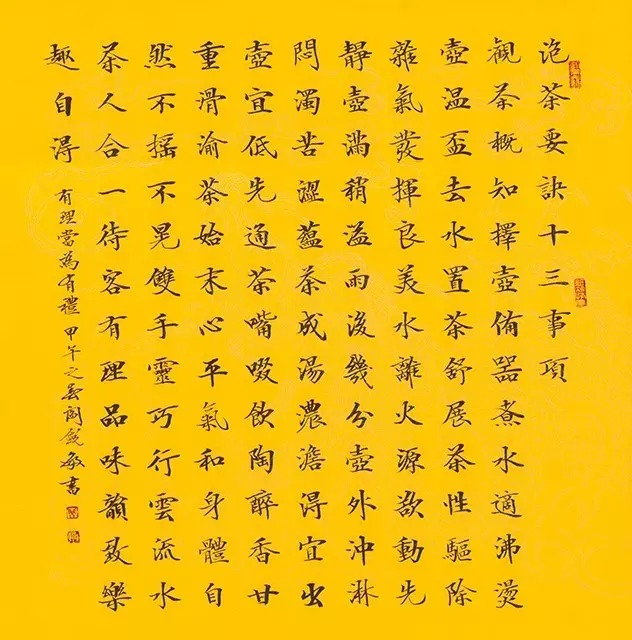 泡茶要訣十三事項
觀茶概知擇壺備器煮水適沸燙
壺温盃去水置茶舒展茶性驅除
雜氣發揮良美水離火源欲動先
靜壺滿稍溢雨後幾分壺外沖淋
悶濁苦澀蘊茶成湯濃澹得宜出
壺宜低先通茶嘴啜飲陶醉香甘
重滑渝茶始末心平氣和身體自
然不摇不晃雙手靈巧行雲流水
茶人合一待客有理品味韻致樂
趣自得
有理當為有禮 甲午之 敏書